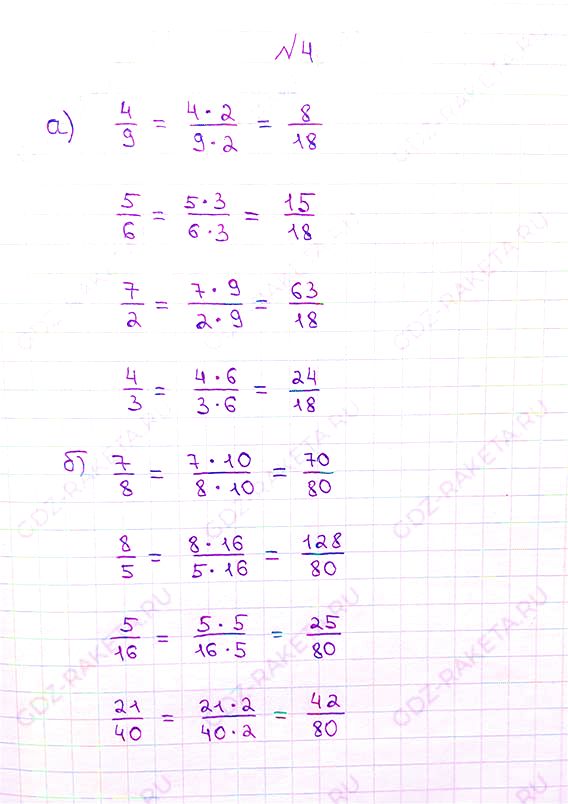 №4
а) 4/9 = 4·2/9·2 = 8/18
5/6 = 5·3/6·3 = 15/18
7/2 = 7·9/2·9 = 63/18
4/3 = 4·6/3·6 = 24/18
б) 7/8 = 7·10/8·10 = 70/80
8/5 = 8·16/5·16 = 128/80
5/16 = 5·5/16·5 = 25/80
21/40 = 21·2/40·2 = 42/80
GDZ-RAKETA.RU